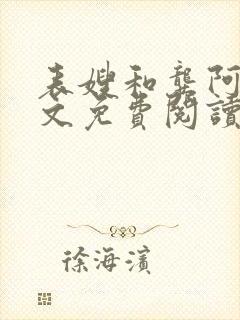 表嫂和龔阿
文免費閱讀
徐海濱